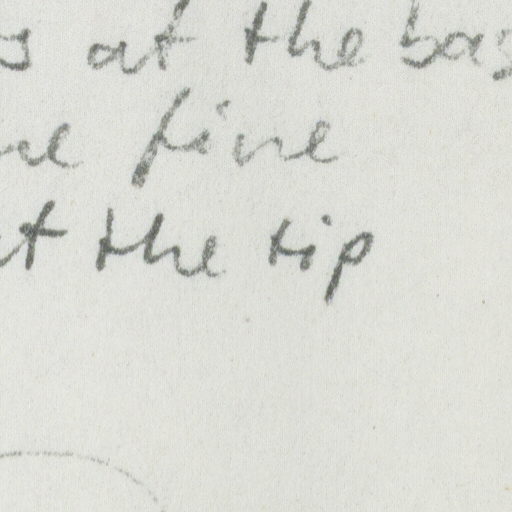 at the bas
fine
at the tip